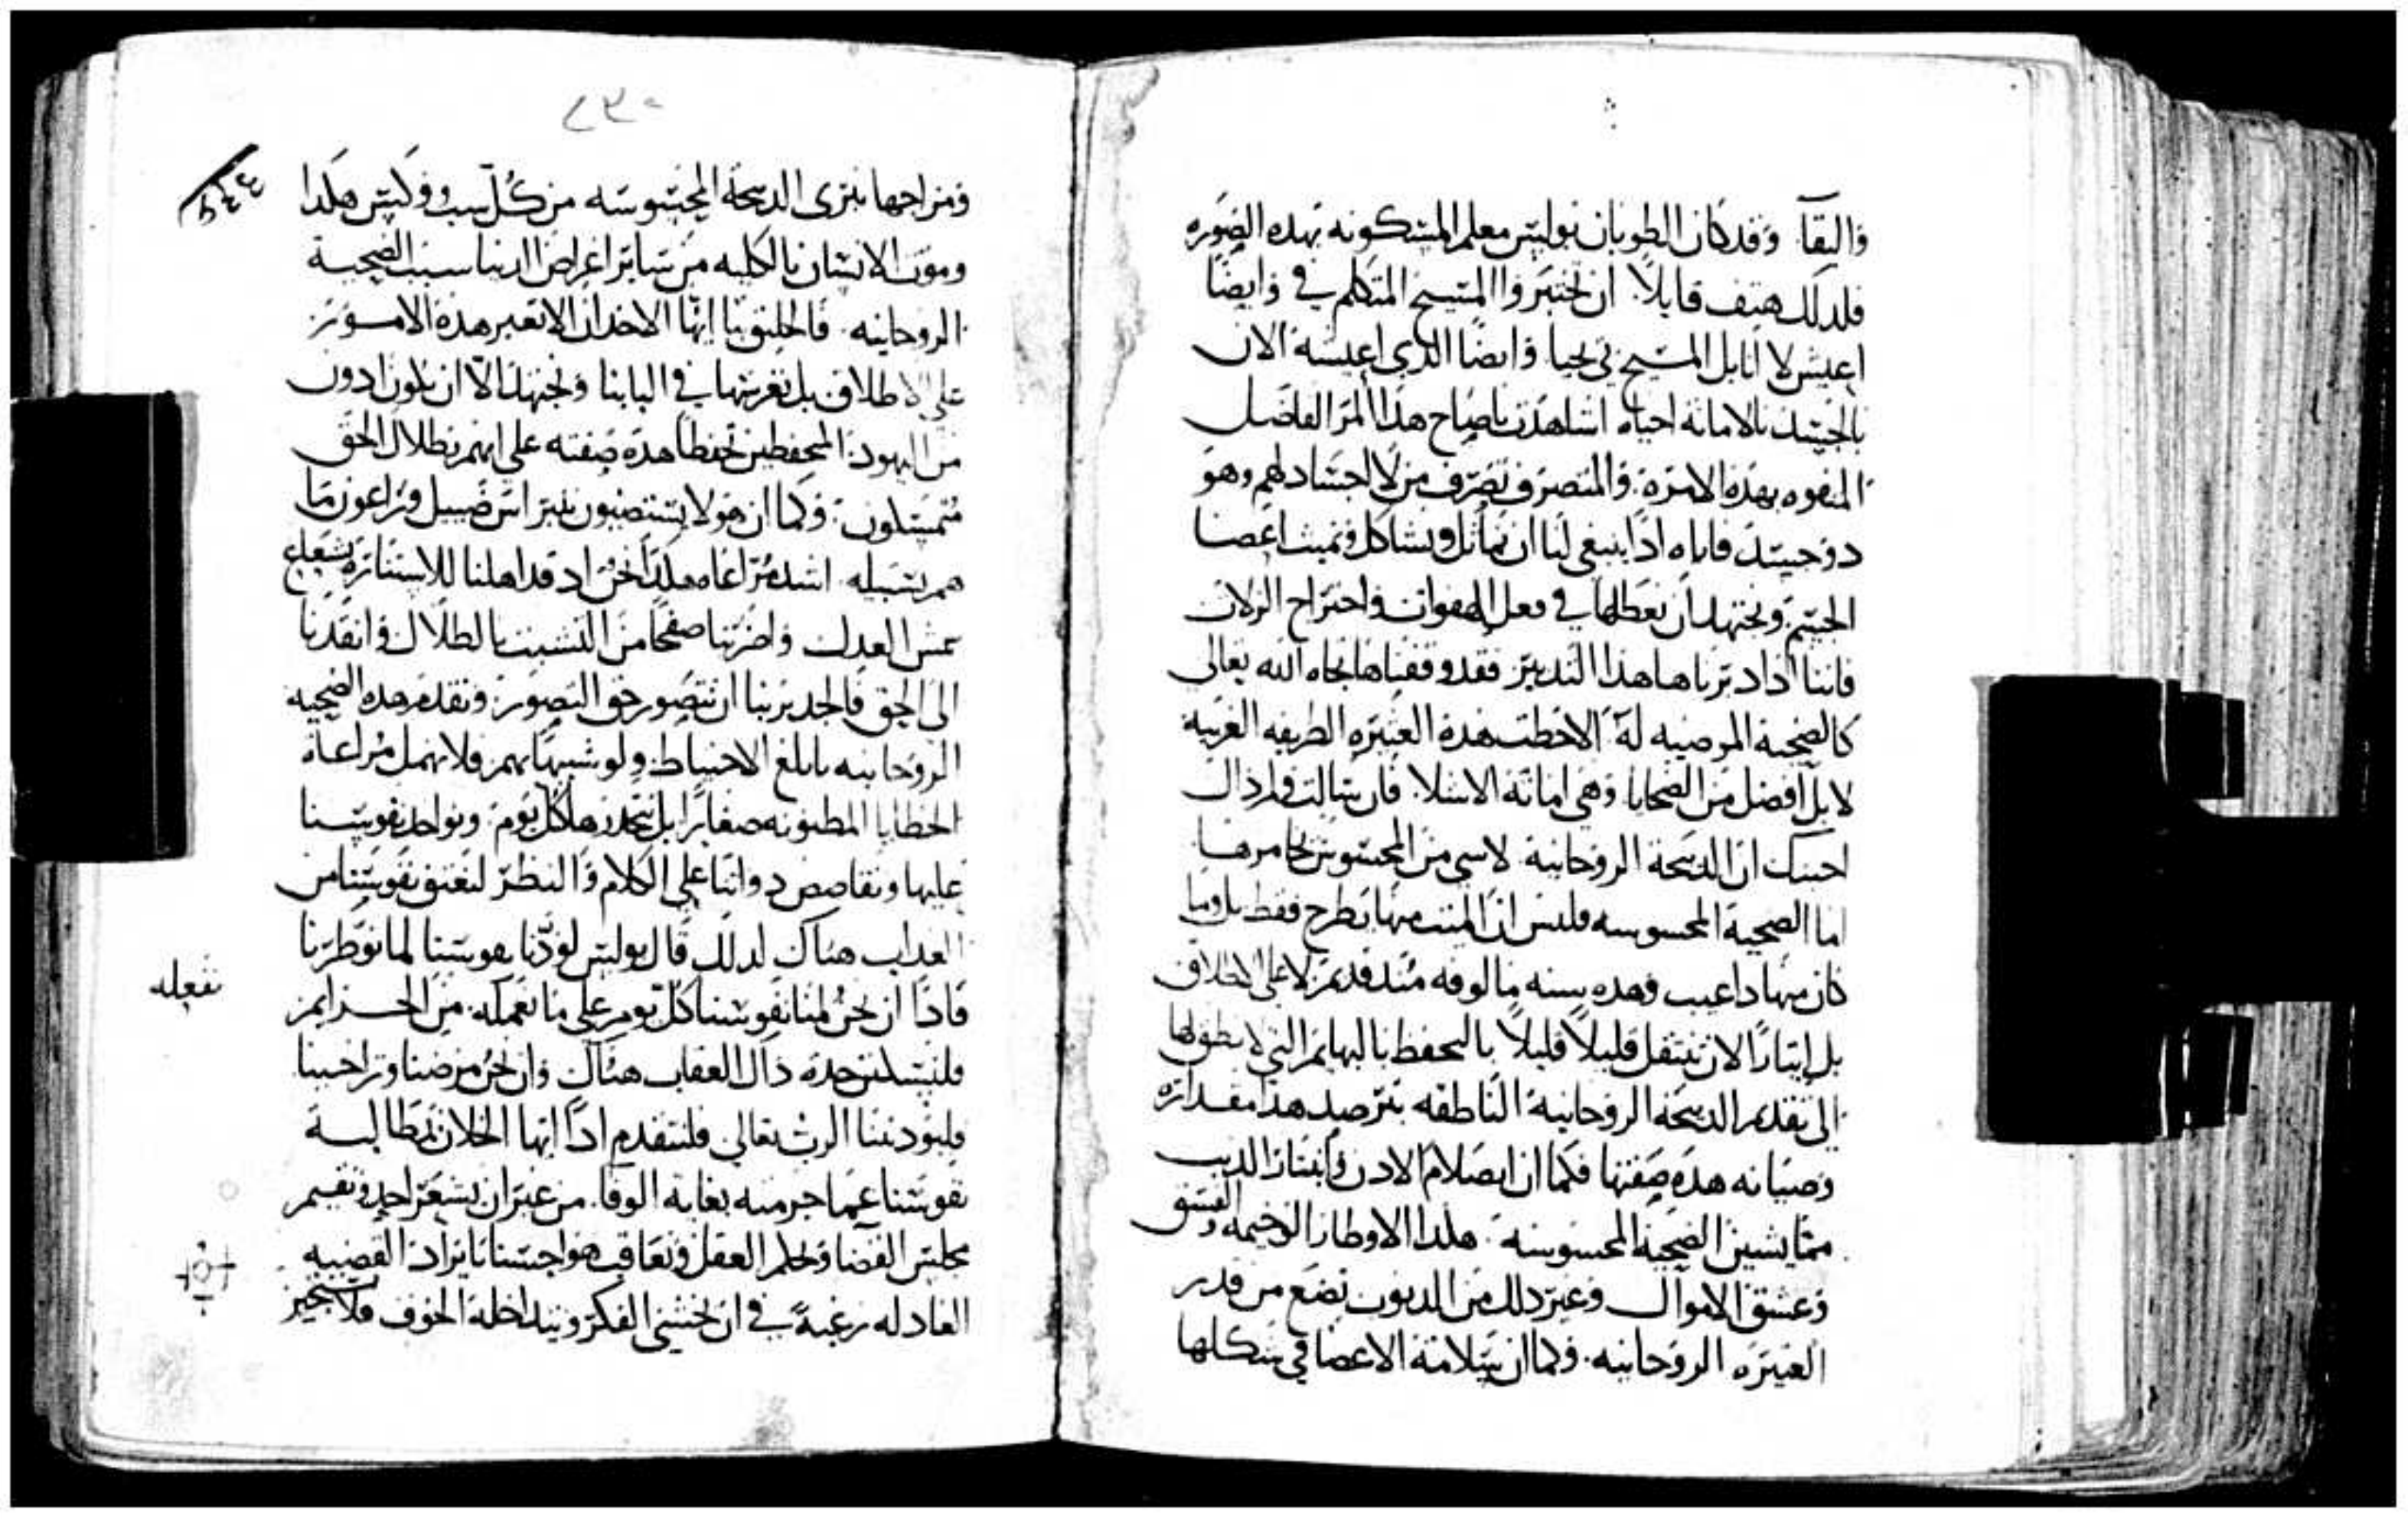 والبقآ وقد كان الطوبان بولس معلم المسكونه بهده الصوره
فلدلك هتف قايلاً ان تختبروا المسيح المتكلم في وايضًا
اعيش لا انا بل المسيح في يحيا وايضًا الدي اعيشه الان
بالجسد بالامانة احياه اشاهدت ياصاح هذا المر الفاضل
المفوه بهذه الامرة والمتصرف تصرف من لا اجساد لهم وهو
دو جسد فاياه ادًا ينبغي لنا ان نماثل ونشاكل ونميت اعضا
الجسم ونجتهد ان نعطلها في فعل الهفوات واجتراح الزلات
فاننا اذا دبرناها هذا التدبير فقد وقفناها تجاه الله تعالى
كالضحية المرضيه له الاحظت هذه العتيره الطريفه الغريبه
لا بل افضل من الضحايا وهي امانة الاسلا فان سالت
اجبتك ان الدبيحة الروحانية لا شي من المحسوس يخامرها
اما الضحية المحسوسه فليس ان الميت منها يطرح فقط بل وما
كان منها دا عيب وهده سنه مالوفه مند قديم لا على الاطلاق
بل ايثارًا لان ننتقل قليلاً قليلاً بالتحفظ بالبهايم التي لا نطق لها
الى تقديم الدبيحة الروحانية الناطقه بترصد هذا مقداره
وصيانه هده صفتها فكما ان اصلام الادن وابتتار الدنب
مما يشين الضحية المحسوسه هكدا الاوطار الوخيمه والفسق
وعشق الاموال وغير دلك من الديوب تضع من قدر
العتيره الروحانيه. وكما ان سلامة الاعضا في شكلها
٢٣٠
ومزاجها تبرى الدبيحة المحسوسه من كل سبب وكس هكدا
وموت الانسان بالكليه من ساير اعراض الدنيا سبب الضحية
الروحانيه فالخليق بنا ايها الاخدان الا نعبر هذه الامور
على الاطلاق بل نغرسها في البابنا ونجتهد الا ان نكون ادون
من اليهود المتحفظين تحفظا هده صفته على انهم بظلال الحق
متمسكون وكما ان هولا يستضيون بنبراس ضييل ويراعون ما
هم بسبيله اشد مراعاه هكدا نحن اد قد اهلنا للاستنارة بشعاع
شمس العدل واضربنا صفحًا من التشبث بالظلال وانقدنا
الى الحق فالجدير بنا ان نتصور حق التصور ونقدم هده الضحيه
الروحانيه بابلغ الاحتياط ولو شبيهًا بهم فلا نهمل مراعاة
الخطايا المظنونه صغايرًا بل نتحدرها كل يوم ونواخد نفوسنا
عليها ونقاصص دواتنا على الكلام والنظر لنعتق نفوسنا من
العداب هناك لدلك قال بولس لو دنا نفوسنا لما توطرنا
فادًا ان نحن لمنا نفوسنا كل يوم على ما نعمله من الجرايم
فلنستلن حدة دال العقاب هناك وان نحن مرضنا وتراخينا
فليودبننا الرب تعالى فلنتقدم ادًا ايها الخلان بمطالبة
نفوسنا عما اجرمته بغاية الوفا من غير ان يشعر احد ونقيم
مجلس القضا ونحكم العقل ونعاقب هواجسنا بايراد القضيه
العادله رغبةً في ان يخشى الفكر ويتداخله الخوف فلا يستجيز
نفعله